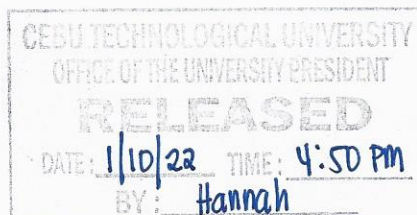 CEBU TECHNOLOGICAL UNIVERSITY
OFFICE OF THE UNIVERSITY PRESIDENT
RELEASED
DATE: 1/10/22 TIME: 4:50 PM
BY: Hannah